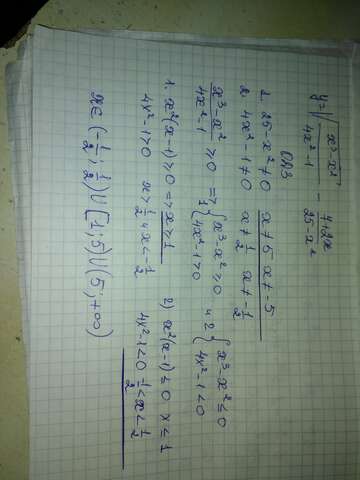 y=√(x³-x²)/(4x²-1) - (7+2x)/(25-x²)
ОДЗ
1. 25-x²≠0 x≠5 x≠-5
2. 4x²-1≠0 x≠1/2 x≠-1/2
(x³-x²)/(4x²-1) ≥0 => 1 {x³-x²≥0 4x²-1>0 и 2 {x³-x²≤0 4x²-1<0
1. x²(x-1)≥0 => x≥1 2) x²(x-1)≤0 x≤1
4x²-1>0 x>1/2 и x<-1/2 4x²-1<0 -1/2<x<1/2
x∈(-1/2;1/2)U[1;5)U(5;+∞)